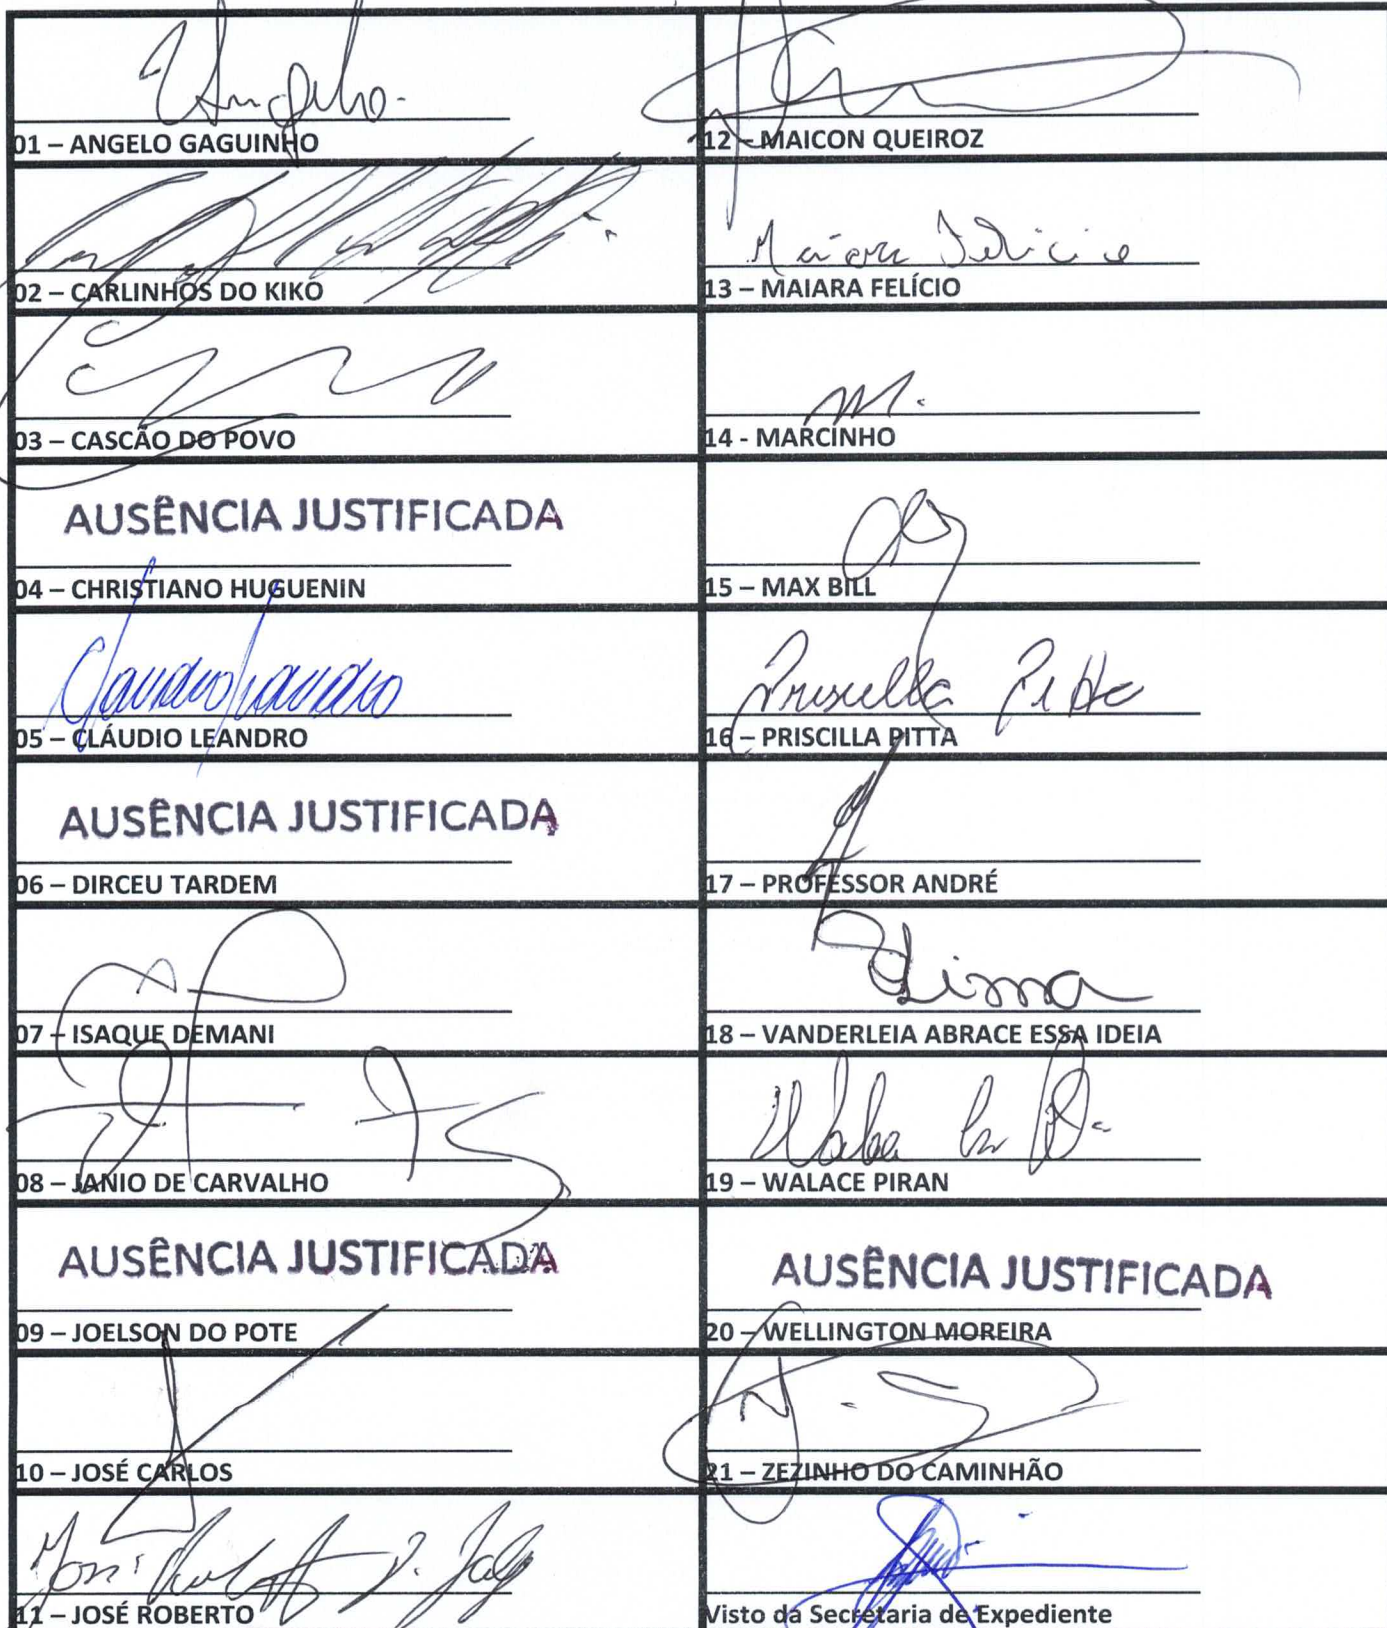 Angelo.
01 – ANGELO GAGUINHO
02 – CARLINHOS DO KIKO
03 – CASCÃO DO POVO
AUSÊNCIA JUSTIFICADA
04 – CHRISTIANO HUGUENIN
Claudio Leandro
05 – CLÁUDIO LEANDRO
AUSÊNCIA JUSTIFICADA
06 – DIRCEU TARDEM
07 – ISAQUE DEMANI
08 – JANIO DE CARVALHO
AUSÊNCIA JUSTIFICADA
09 – JOELSON DO POTE
10 – JOSÉ CARLOS
José Roberto
11 – JOSÉ ROBERTO
12 – MAICON QUEIROZ
Maiara Felicio
13 – MAIARA FELÍCIO
M.
14 - MARCINHO
15 – MAX BILL
Priscilla Pitta
16 – PRISCILLA PITTA
17 – PROFESSOR ANDRÉ
Lima
18 – VANDERLEIA ABRACE ESSA IDEIA
19 – WALACE PIRAN
AUSÊNCIA JUSTIFICADA
20 – WELLINGTON MOREIRA
21 – ZEZINHO DO CAMINHÃO
Visto da Secretaria de Expediente